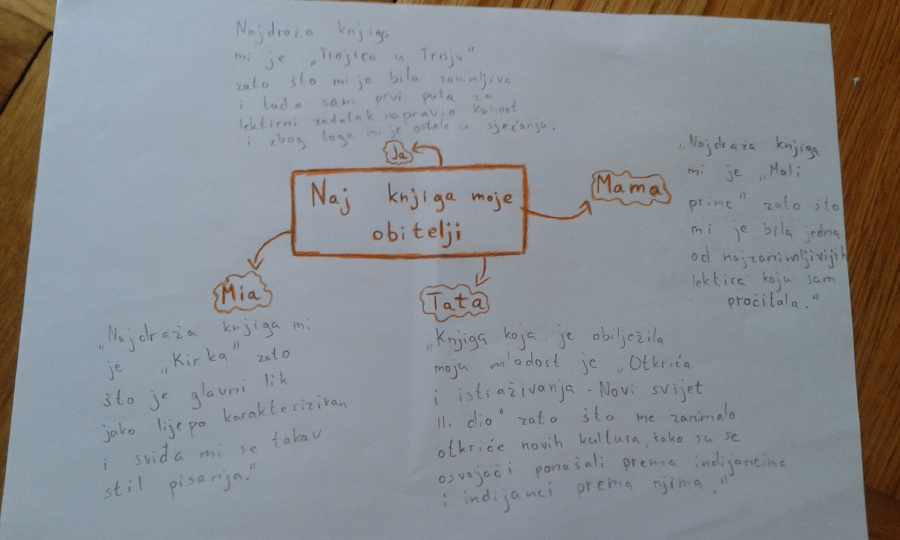 Najdraža knjiga
mi je „Trojica u Trnju"
zato što mi je bila zanimljiva
i tada sam prvi puta za
lektirni zadatak napravio kahoot
i zbog toga mi je ostala u sjećanju.
Ja
Naj knjiga moje
obitelji
Mama
„Najdraža knjiga
mi je „Mali
princ" zato što
mi je bila jedna
od najzanimljivijih
lektira koju sam
pročitala."
Mia
„Najdraža knjiga mi
je „Kirka" zato
što je glavni lik
jako lijepo karakteriziran
i sviđa mi se takav
stil pisanja."
Tata
„Knjiga koja je obilježila
moju mladost je „Otkrića
i istraživanja - Novi svijet
II. dio" zato što me zanimalo
otkriće novih kultura, kako su se
osvajači ponašali prema indijancima
i indijanci prema njima."